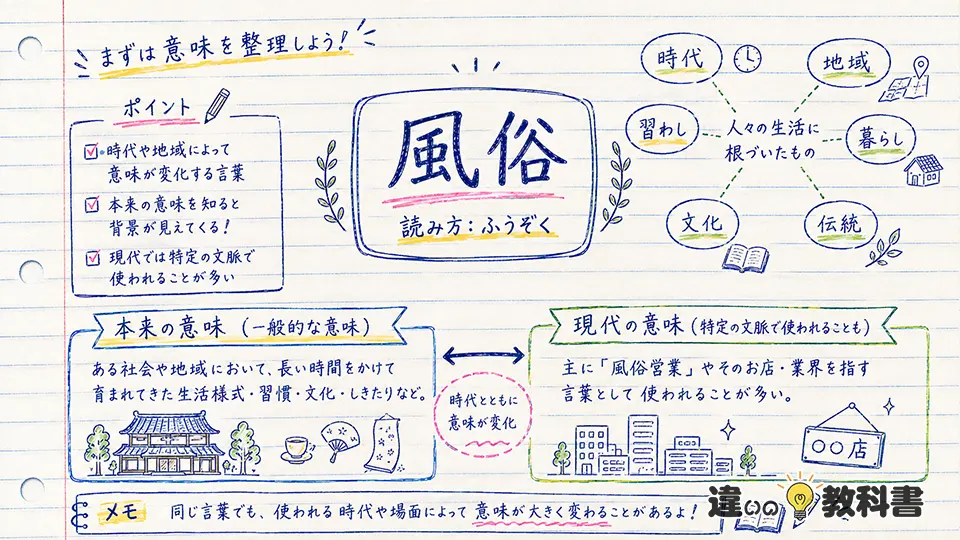 まずは意味を整理しよう!
ポイント
時代や地域によって
意味が変化する言葉
本来の意味を知ると
背景が見えてくる!
現代では特定の文脈で
使われることが多い
風俗
読み方:ふうぞく
時代
地域
習わし
人々の生活に
根づいたもの
暮らし
文化
伝統
本来の意味(一般的な意味)
ある社会や地域において、長い時間をかけて
育まれてきた生活様式・習慣・文化・しきたりなど。
時代とともに
意味が変化
現代の意味(特定の文脈で使われることも)
主に「風俗営業」やそのお店・業界を指す
言葉として使われることが多い。
○○店
メモ
同じ言葉でも、使われる時代や場面によって意味が大きく変わることがあるよ!
違いの教科書